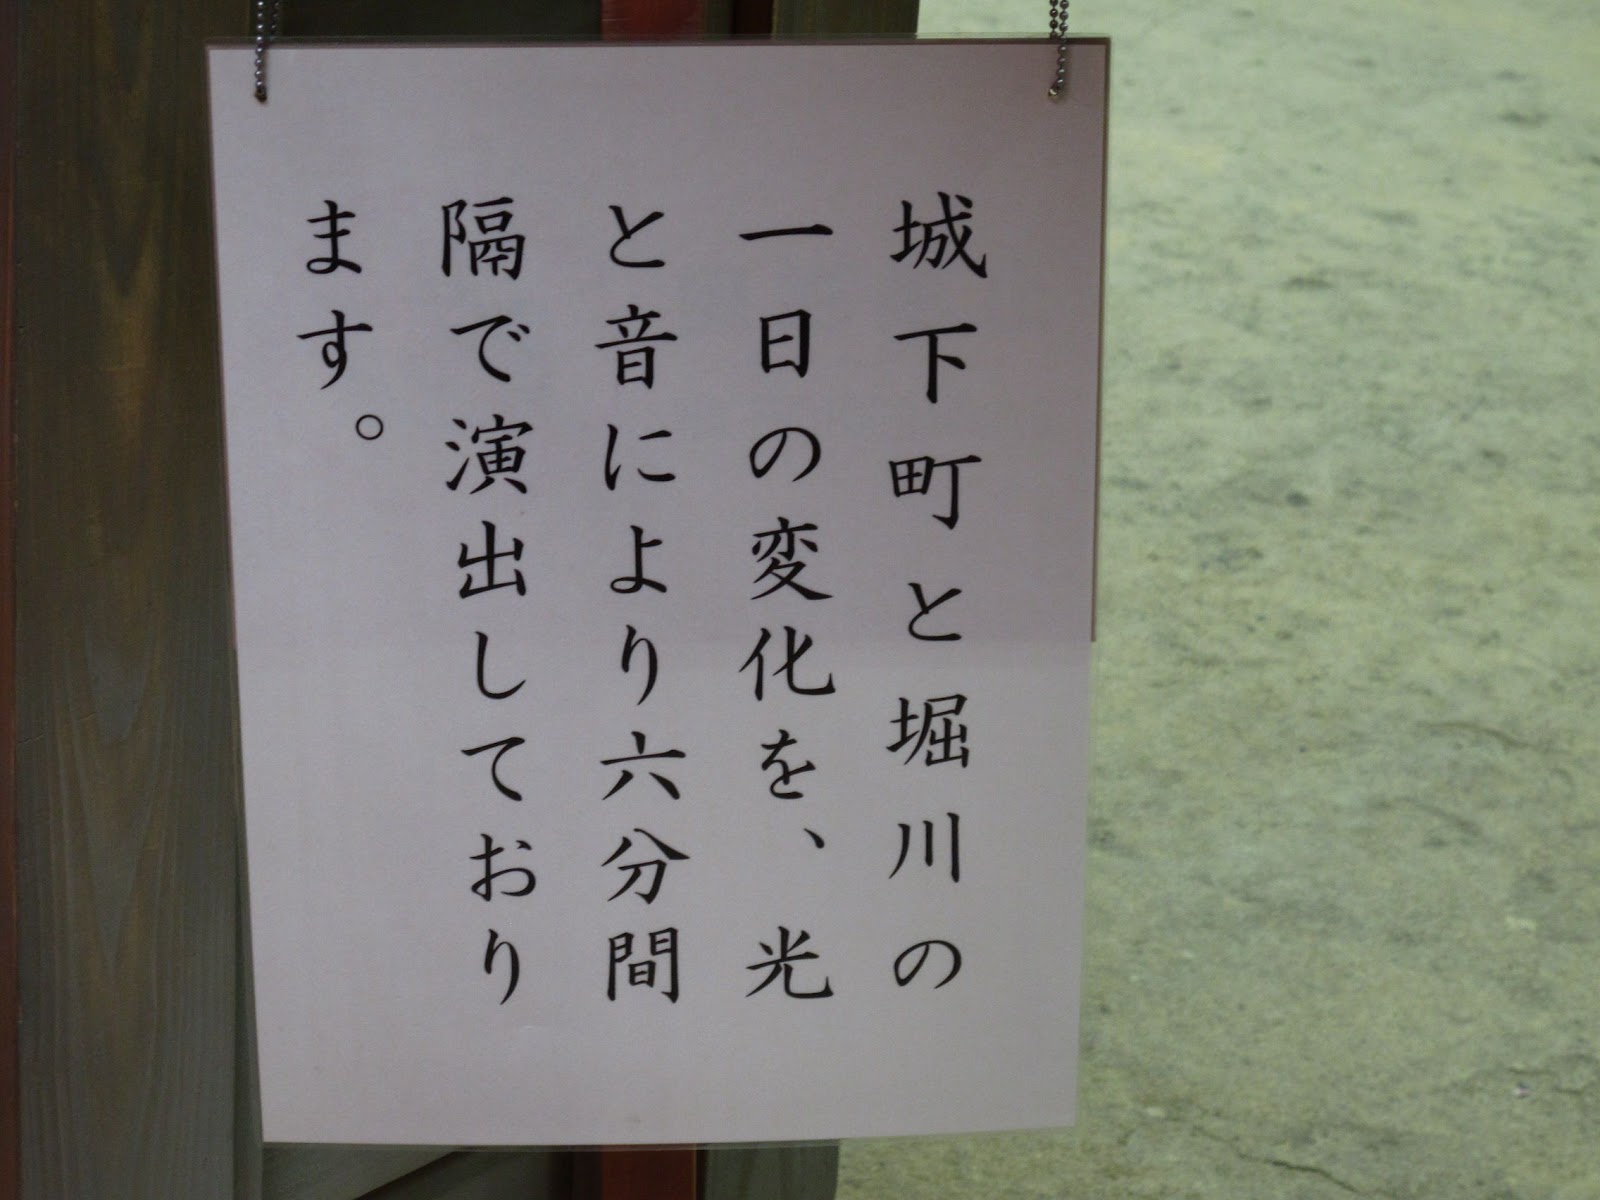 城下町と堀川の
一日の変化を、光
と音により六分間
隔で演出しており
ます。